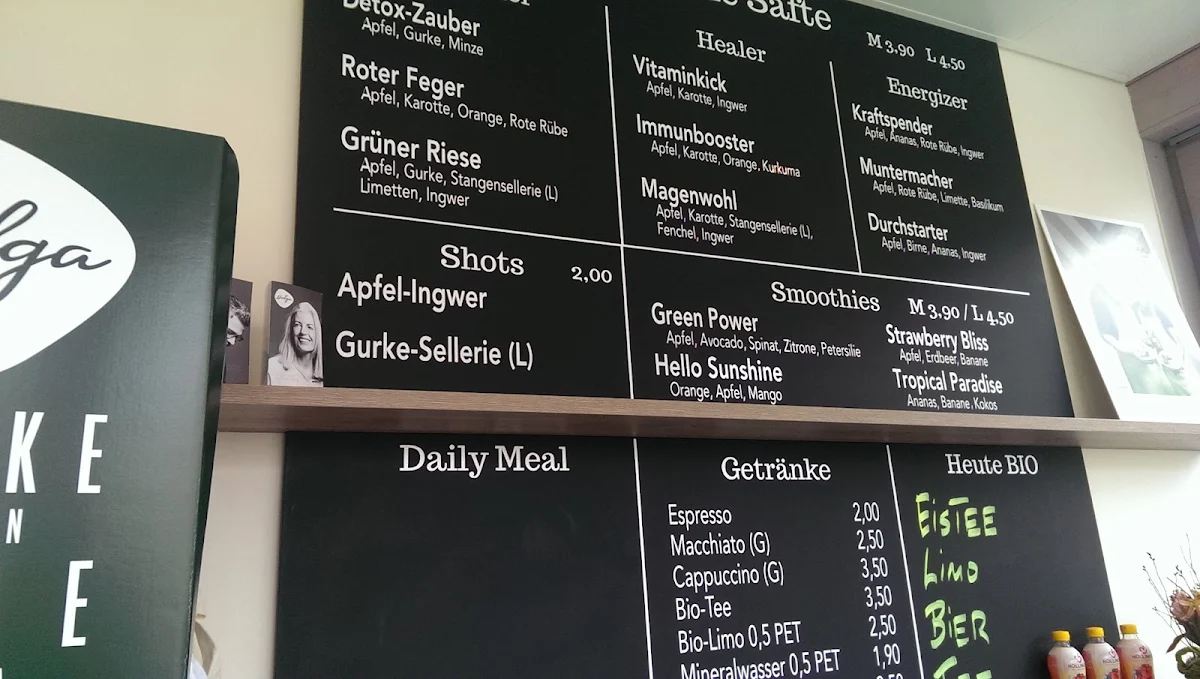 Detox-Zauber
Apfel, Gurke, Minze
Roter Feger
Apfel, Karotte, Orange, Rote Rübe
Grüner Riese
Apfel, Gurke, Stangensellerie (L)
Limetten, Ingwer
Säfte
M 3,90 L 4,50
Healer
Vitaminkick
Apfel, Karotte, Ingwer
Immunbooster
Apfel, Karotte, Orange, Kurkuma
Magenwohl
Apfel, Karotte, Stangensellerie (L),
Fenchel, Ingwer
Energizer
Kraftspender
Apfel, Ananas, Rote Rübe, Ingwer
Muntermacher
Apfel, Rote Rübe, Limette, Basilikum
Durchstarter
Apfel, Birne, Ananas, Ingwer
Shots 2,00
Apfel-Ingwer
Gurke-Sellerie (L)
Smoothies M 3,90 / L 4,50
Green Power
Apfel, Avocado, Spinat, Zitrone, Petersilie
Hello Sunshine
Orange, Apfel, Mango
Strawberry Bliss
Apfel, Erdbeer, Banane
Tropical Paradise
Ananas, Banane, Kokos
Daily Meal
Getränke
Espresso 2,00
Macchiato (G) 2,50
Cappuccino (G) 3,50
Bio-Tee 3,50
Bio-Limo 0,5 PET 2,50
Mineralwasser 0,5 PET 1,90
Heute BIO
EISTEE
LIMO
BIER
KE
N
E